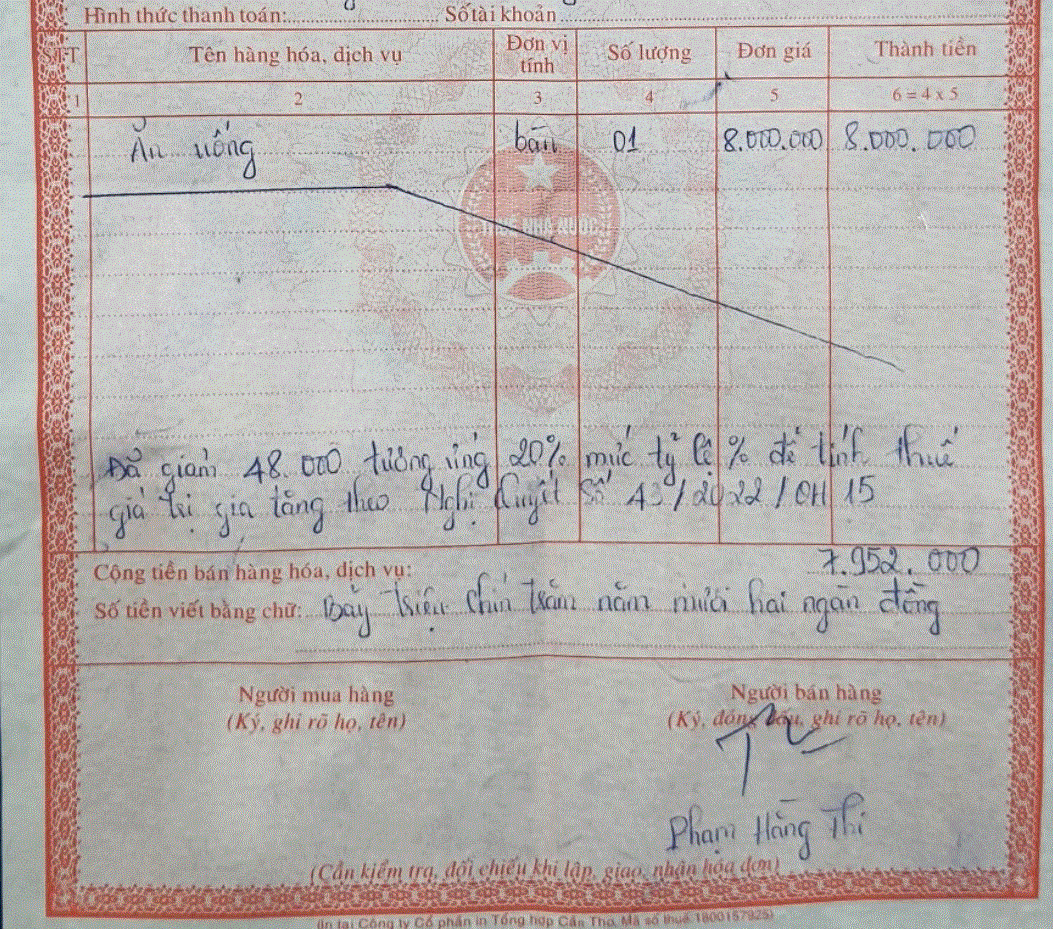 Hình thức thanh toán: Số tài khoản
STT Tên hàng hóa, dịch vụ Đơn vị tính Số lượng Đơn giá Thành tiền
1 2 3 4 5 6 = 4 x 5
Ăn uống bàn 01 8.000.000 8.000.000
THUẾ NHÀ NƯỚC
Đã giảm 48.000 tương ứng 20% mức tỷ lệ % để tính thuế
giá trị gia tăng theo Nghị Quyết Số 43/2022/QH 15
Cộng tiền bán hàng hóa, dịch vụ: 7.952.000
Số tiền viết bằng chữ: Bảy triệu chín trăm năm mươi hai ngàn đồng
Người mua hàng Người bán hàng
(Ký, ghi rõ họ, tên) (Ký, đóng dấu, ghi rõ họ, tên)
Phạm Hăng Thi
(Cần kiểm tra, đối chiếu khi lập, giao, nhận hóa đơn)
(In tại Công ty Cổ phần in Tổng hợp Cần Thơ, Mã số thuế 1800157925)